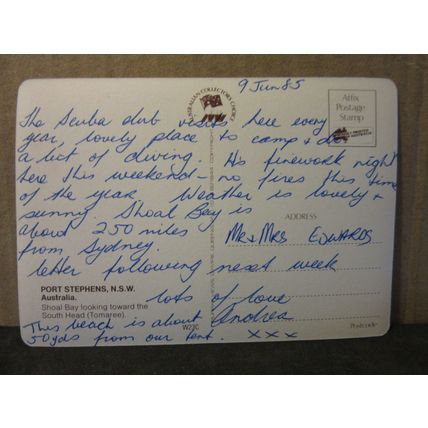 9 Jun 85
AUSTRALIAN COLLECTORS CHOICE
Affix
Postage
Stamp
The Scuba club visits here every
year, lovely place to camp & do
a bit of diving. It's firework night
here this weekend – no fires this time
of the year. Weather is lovely +
sunny. Shoal Bay is
about 250 miles
from Sydney.
ADDRESS
Mr & Mrs EDWARDS
letter following next week
PORT STEPHENS, N.S.W.
Australia.
Shoal Bay looking toward the
South Head (Tomaree).
W22C
lots of love
Andrea
xxx
This beach is about
50yds from our tent.
Postcode